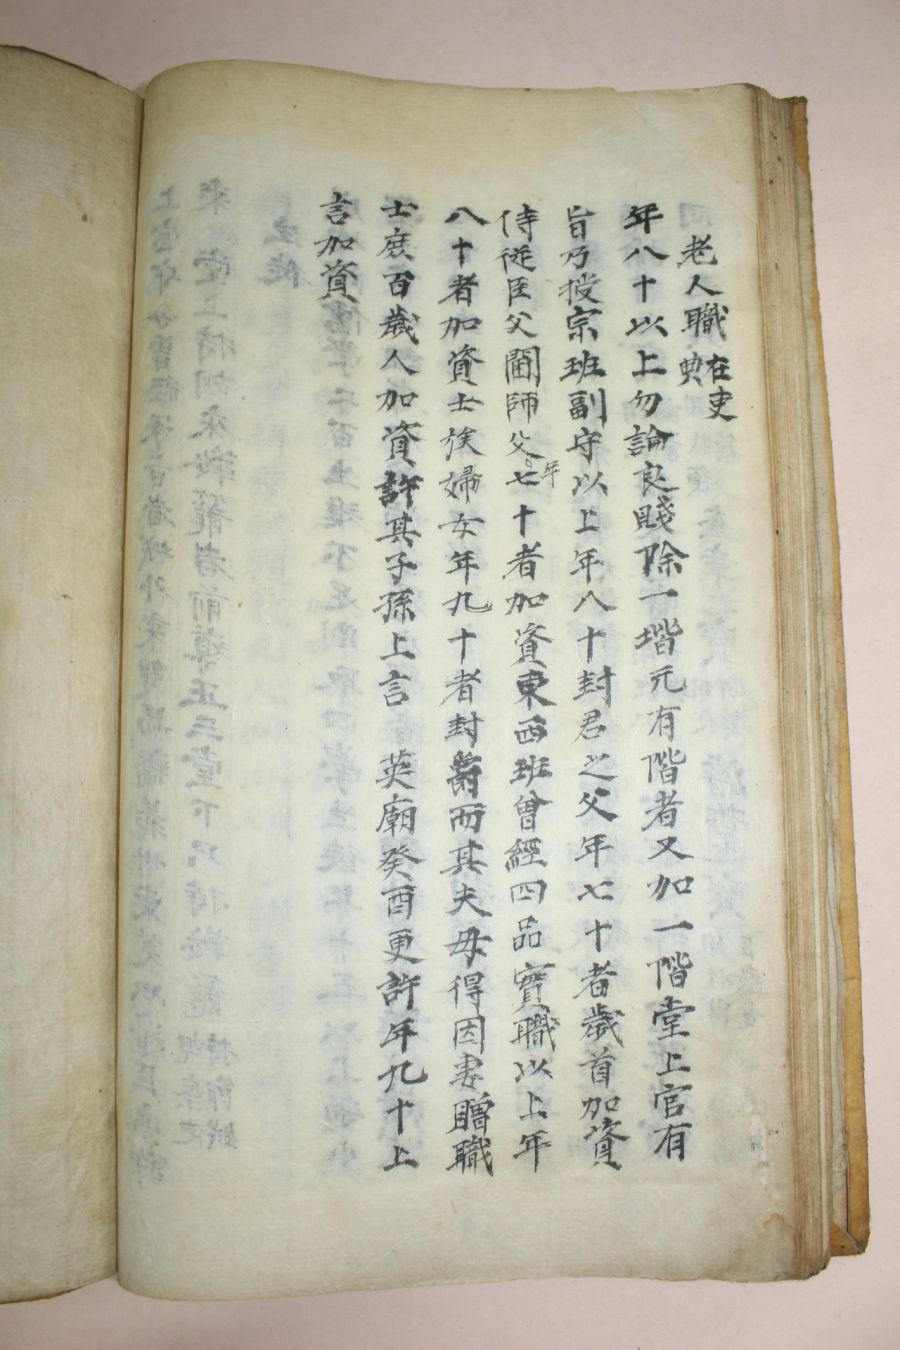 老人職在吏典
年八十以上勿論良賤除一堦元有階者又加一階堂上官有
旨乃授宗班副守以上年八十封君之父年七十者歲首加資
侍從臣父閫帥父年七十者加資東西班曾經四品實職以上年
八十者加資士族婦女年九十者封爵而其夫毋得因妻贈職
士庶百歲人加資許其子孫上言 英廟癸酉更許年九十上
言加資